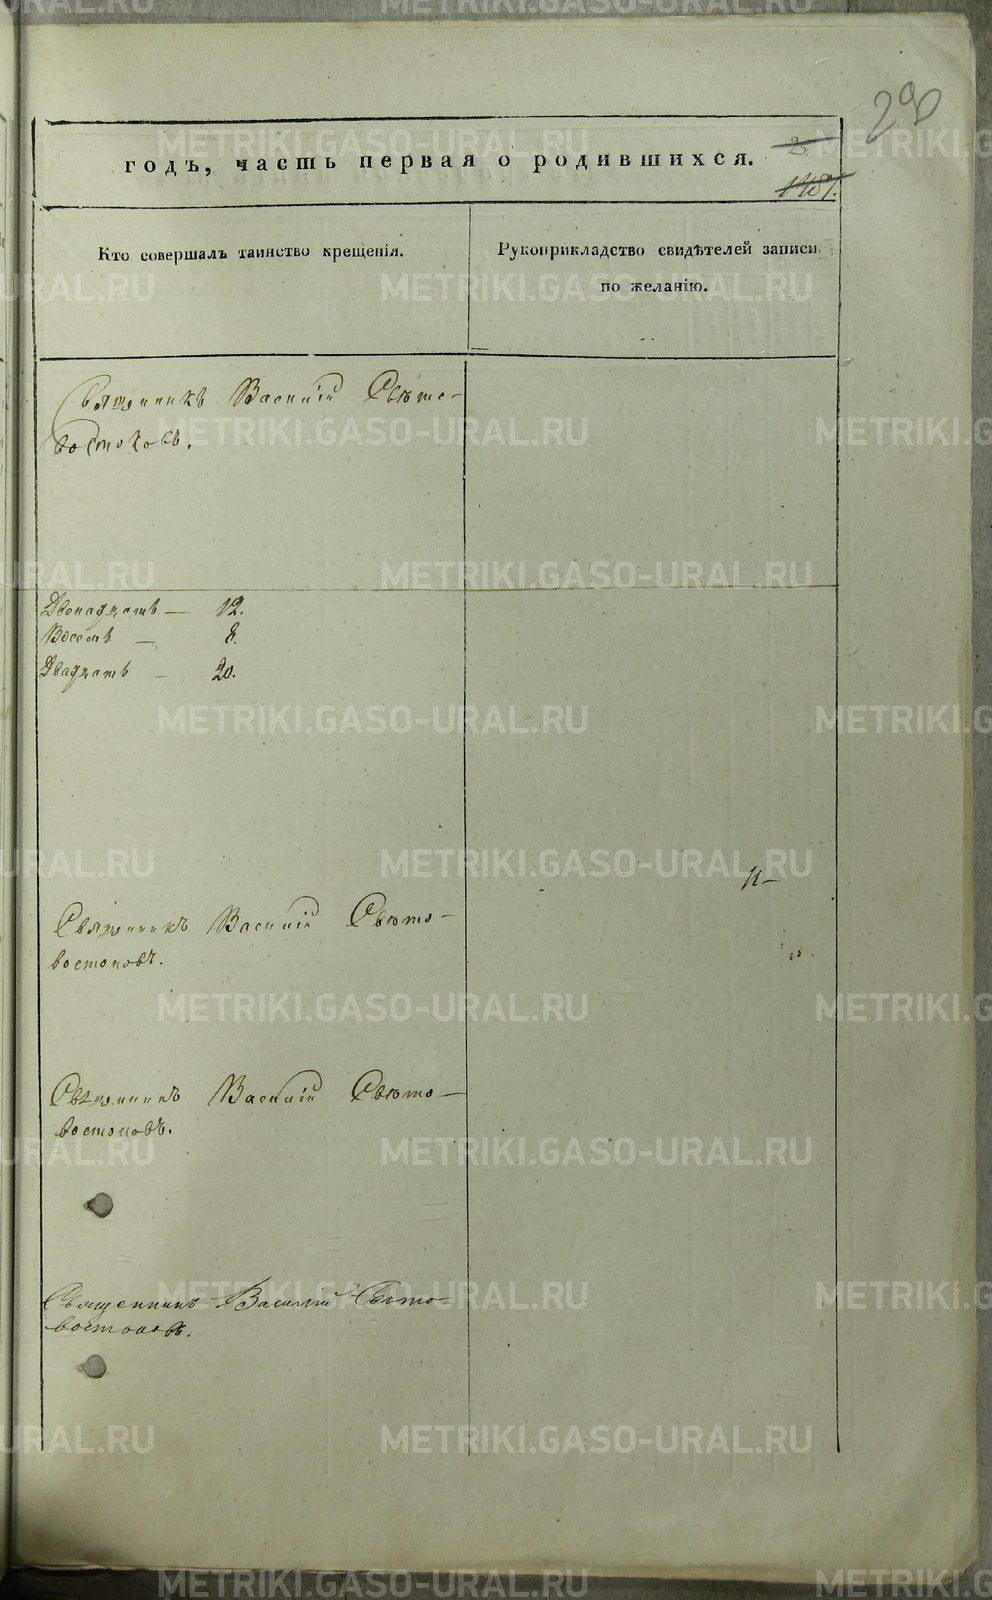 290
годъ, часть первая о родившихся.
2
Кто совершалъ таинство крещенія.
Рукоприкладство свидѣтелей записи
по желанію.
Священникъ Василій Свѣто-
востоковъ.
Двенадцать — 12.
Восемь — 8.
Двадцать — 20.
Священникъ Василій Свѣто-
востоковъ.
Священникъ Василій Свѣто-
востоковъ.
Священникъ Василій Свѣто-
востоковъ.
METRIKI.GASO-URAL.RU